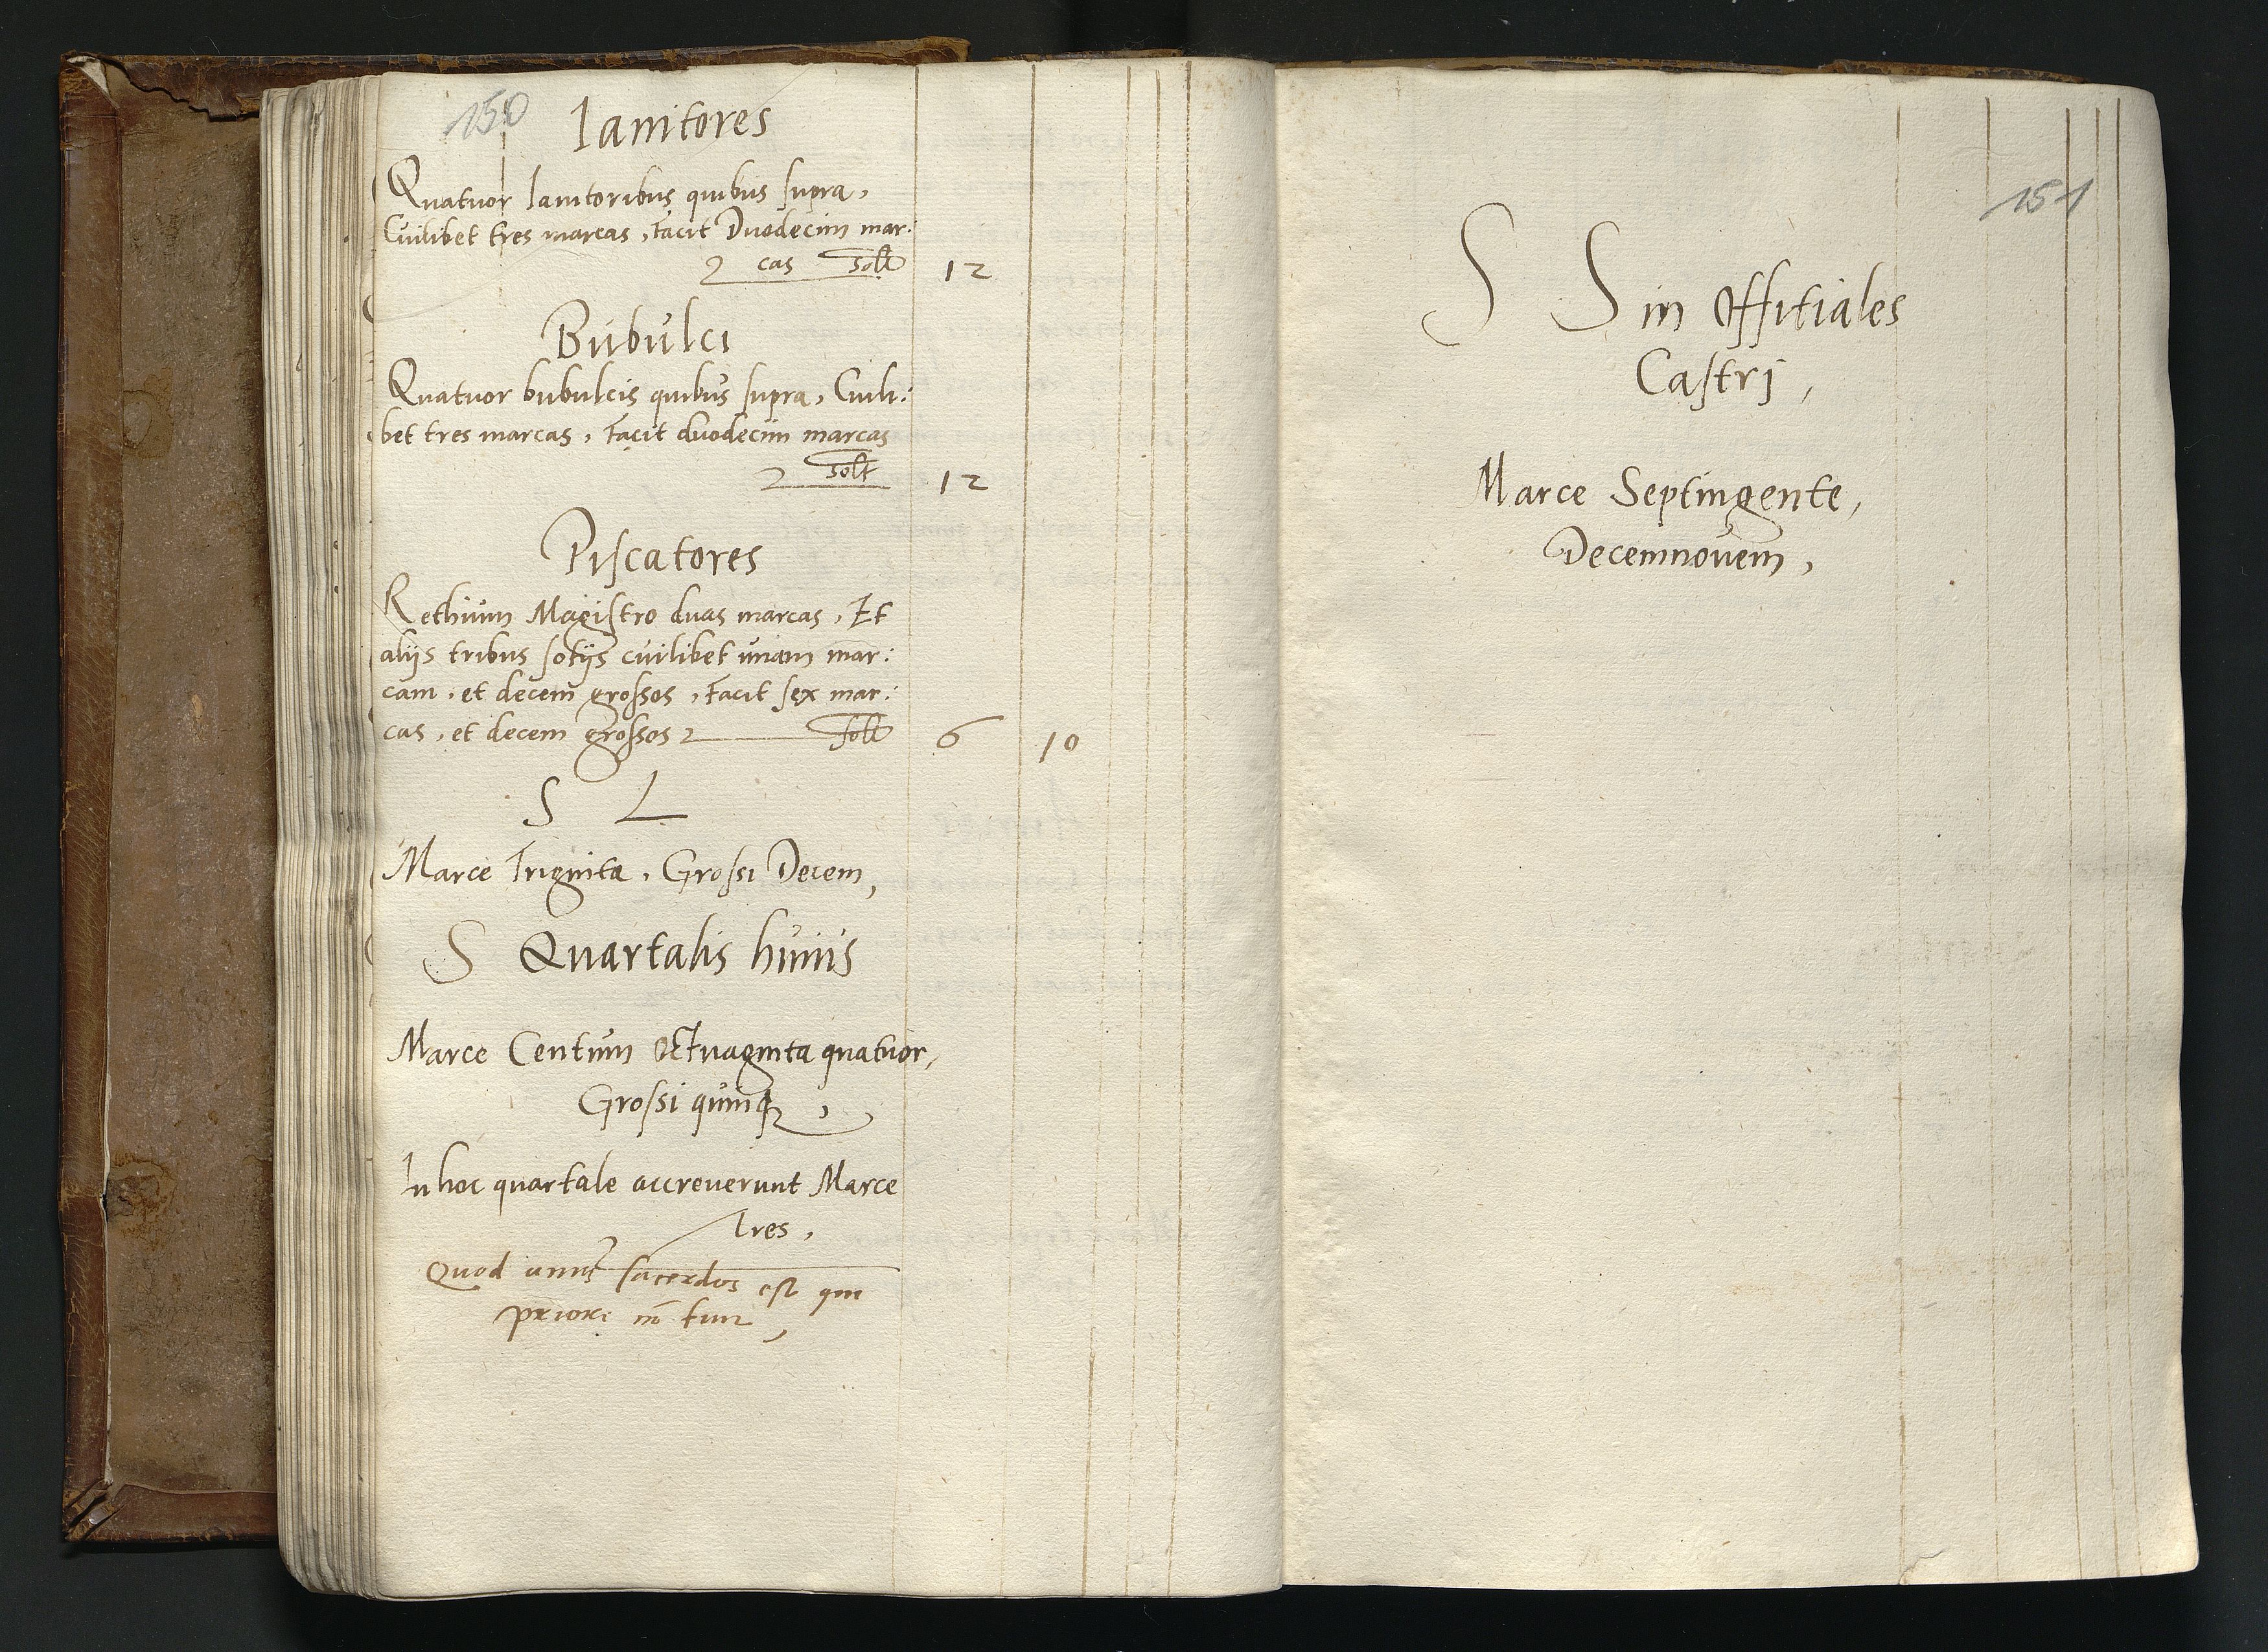 150
Ianitores
Quatuor Ianitoribus quibus supra,
Cuilibet tres marcas, Facit Duodecim mar:
cas solt 12
Bubulci
Quatuor bubulcis quibus supra, Cuili:
bet tres marcas, Facit duodecim marcas
solt 12
Piscatores
Rethium Magistro duas marcas, Et
alijs tribus sotijs cuilibet unam mar:
cam, et decem grossos, Facit sex mar:
cas, et decem grossos solt 6 10
S L
Marce Triginta, Grossi Decem,
S Quartalis huius
Marce Centum Octuaginta quatuor,
Grossi quinq,
In hoc quartale accreuerunt Marce
Tres,
Quod unus sacerdos est qui
priori
151
S S in Offitiales
Castrj,
Marce Septingente,
Decemnouem,